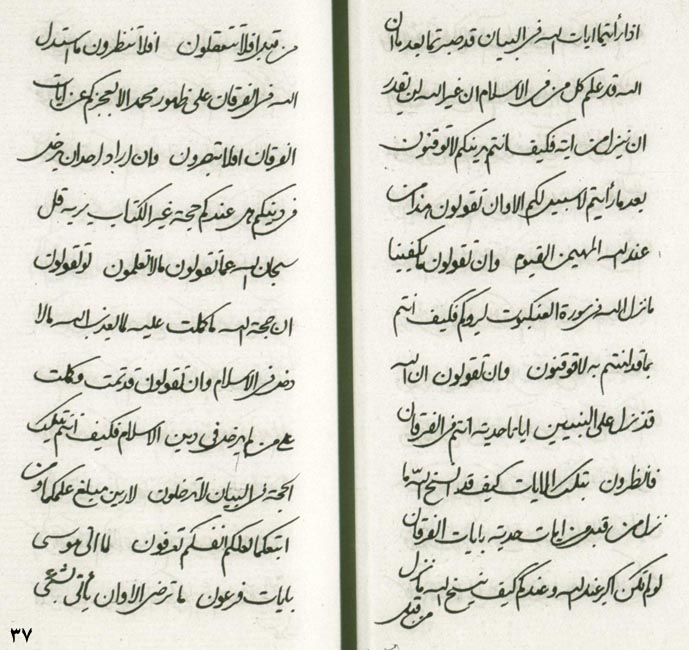 اذا رأيتما ايات الله فى البيان قد صبرتما بعد ما ان
الله قد علم كل من فى الاسلام ان غير الله لن يقدر
ان ينزل من اية فكيف انتم بربكم لا توقنون
بعد ما رأيتم لا سبيل لكم الا وان تقولون هذا من
عند الله المهيمن القيوم وان تقولون ما يكفينا
ما نزل الله فى سورة العنكبوت ليروكم فكيف انتم
بما قد امنتم به لا توقنون وان تقولون ان الله
قد نزل على النبيين ايات احديته انتم فى الفرقان
فانظرون بتلك الايات كيف قد نسخ الله ما
نزل من قبل من ايات احديته بايات الفرقان
لو لم تكن اكبر عند الله وعندكم كيف ينسخ الله ما نزل
من قبل
من قبل افلا تتعقلون افلا تنظرون ما استدل
الله فى الفرقان على ظهور محمد الا بعجزكم عن ايات
الفرقان افلا تتبصرون وان اراد احد ان يدخل
فى دينكم هل عندكم حجة غير الكتاب يريه قل
سبحان الله عما تقولون ما لا تعلمون لو تقولون
ان حجة الله ما كملت عليه لما يعذب الله ما لا
دخل فى الاسلام وان تقولون قد تمت وكملت
على من لم يدخل فى دين الاسلام فكيف انتم بتلك
الحجة فى البيان لا تدخلون لارين مبلغ علمكما ومن
اتبعكما لعلكم انفسكم تعرفون لما اتى موسى
بايات فرعون ما ترضى الا وان يأتى بشئ
٣٧